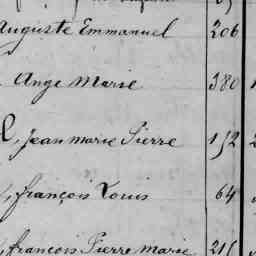 Auguste Emmanuel 206
Ange Marie 380
Jean Marie Pierre 152
, françois Louis 64
, françois Pierre Marie